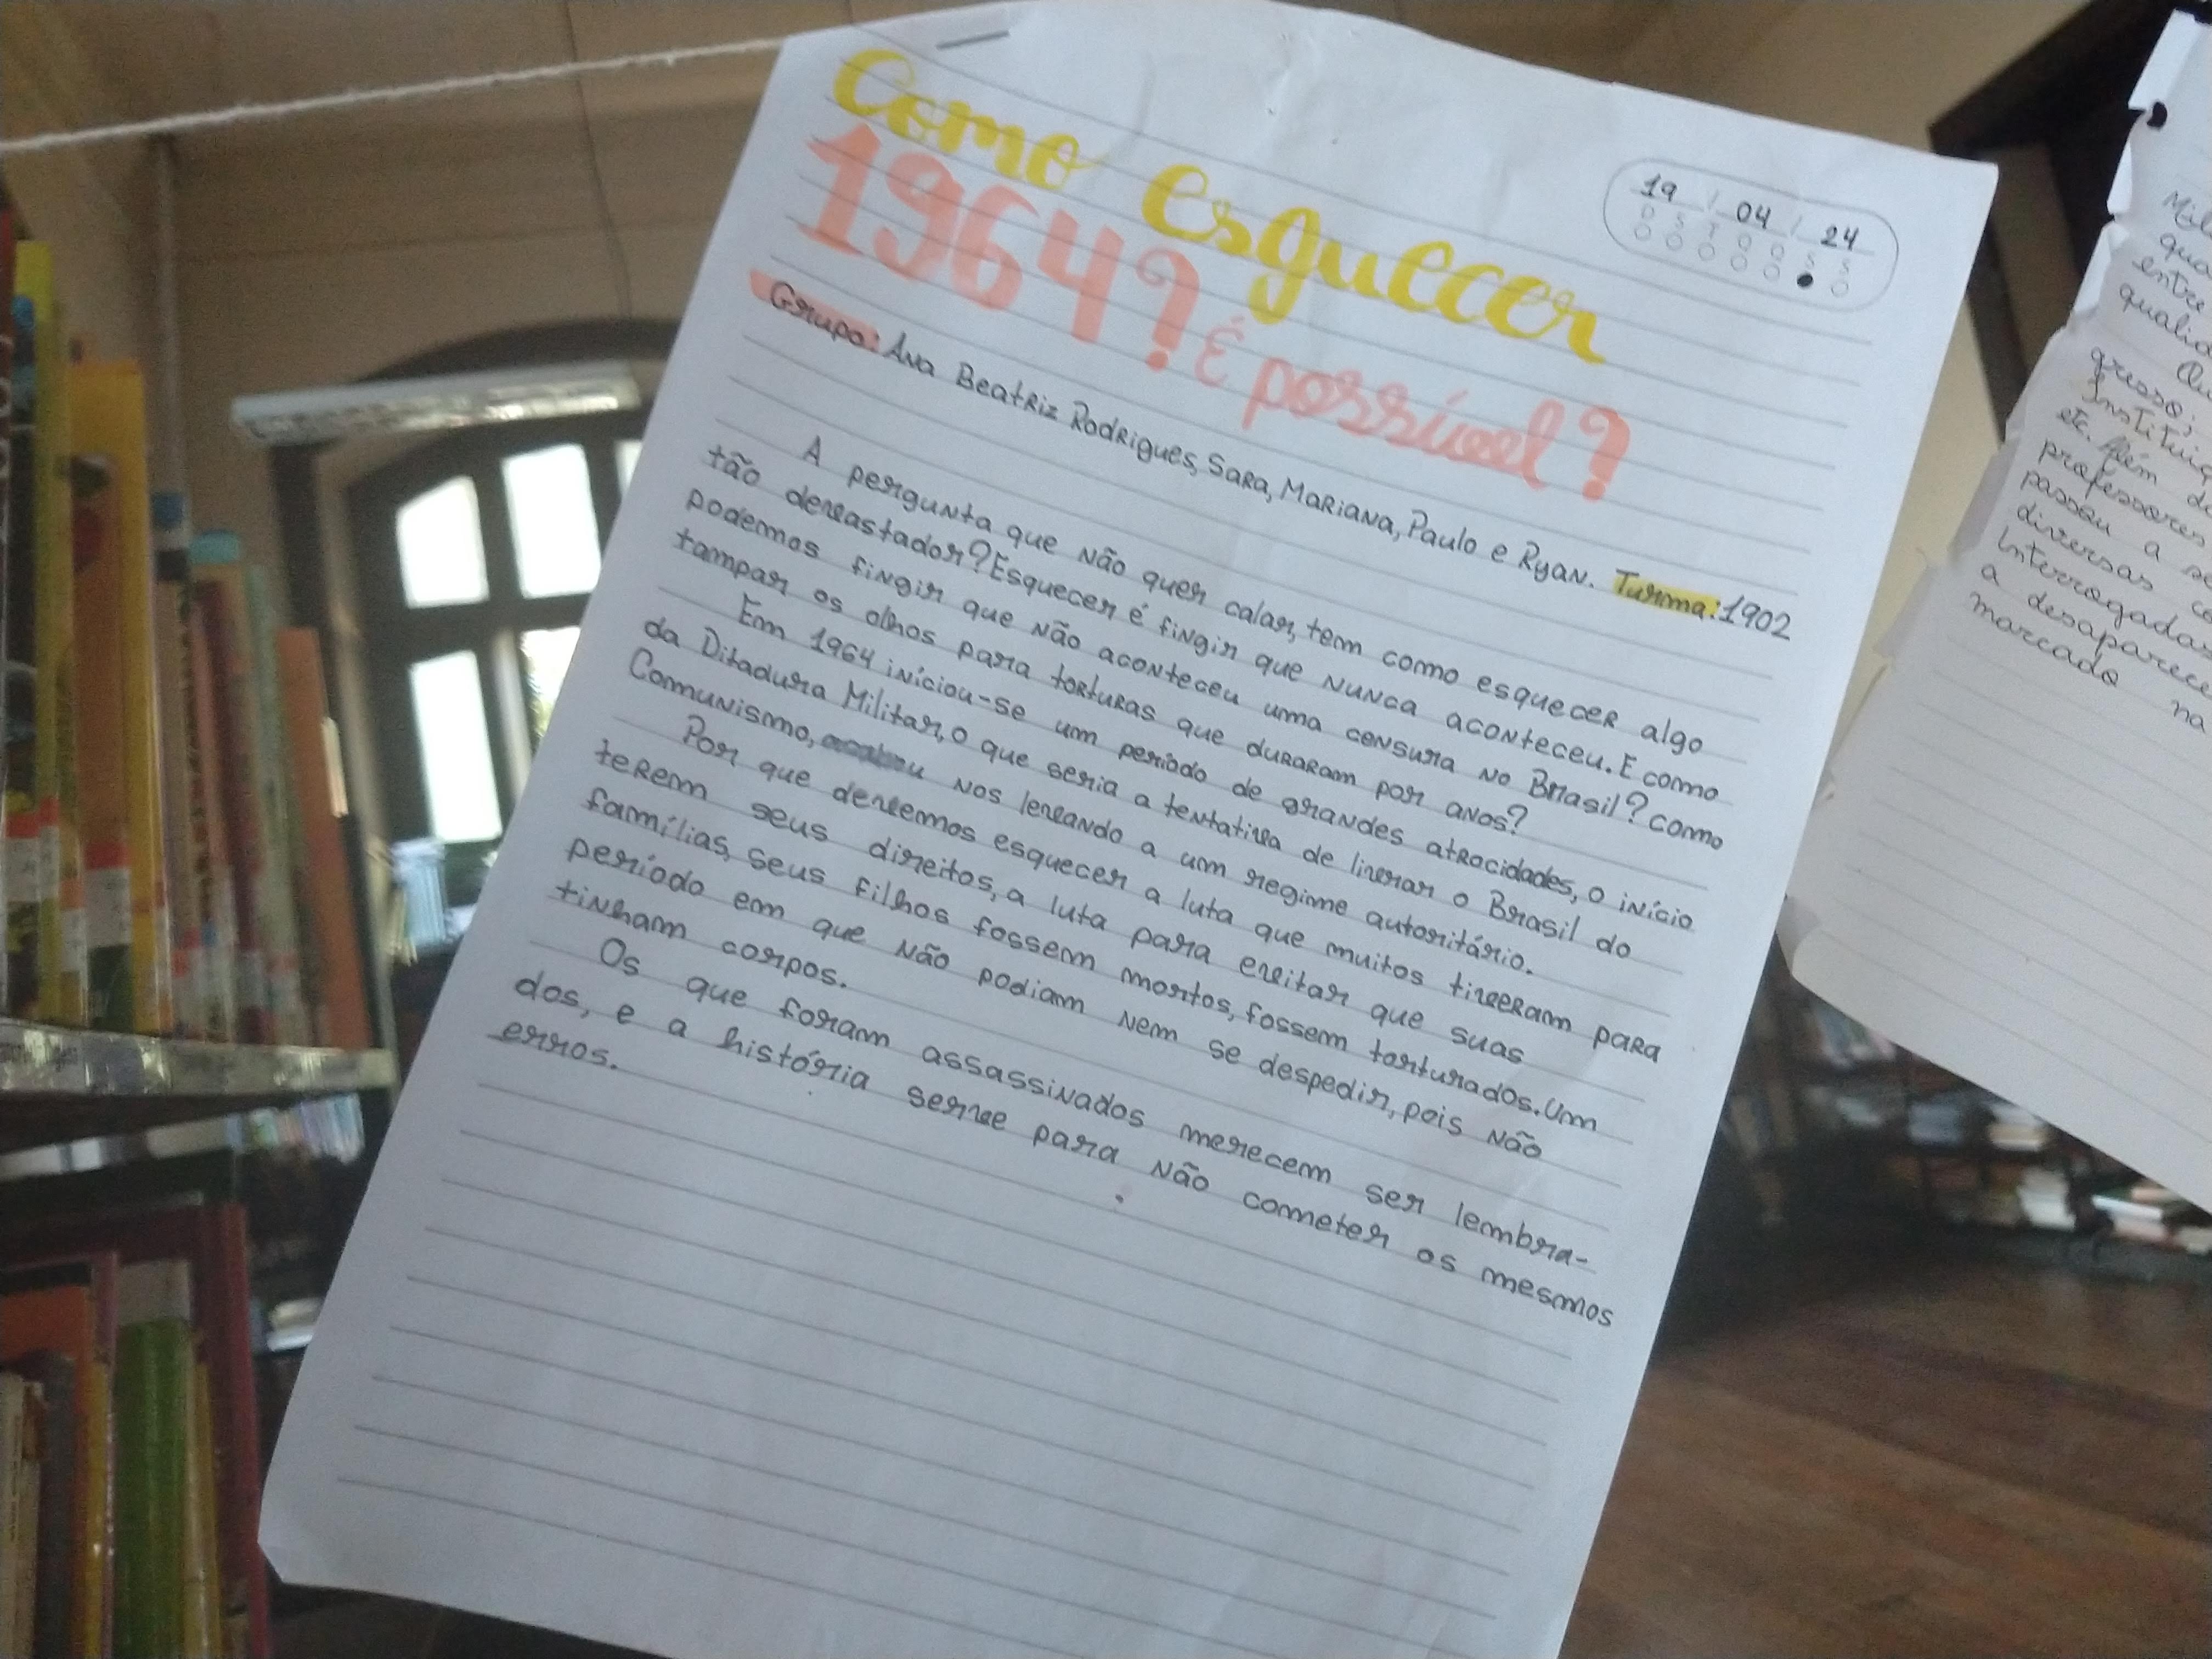 Como esquecer
1964? É possível?
19 / 04 / 24
D S T Q Q S S
Grupo: Ana Beatriz Rodrigues, Sara, Mariana, Paulo e Ryan. Turma: 1902
A pergunta que não quer calar, tem como esquecer algo
tão devastador? Esquecer é fingir que nunca aconteceu. E como
podemos fingir que não aconteceu uma censura no Brasil? como
tampar os olhos para torturas que duraram por anos?
Em 1964 iníciou-se um período de grandes atrocidades, o início
da Ditadura Militar, o que seria a tentativa de livrar o Brasil do
Comunismo, nos levando a um regime autoritário.
Por que devemos esquecer a luta que muitos tiveram para
terem seus direitos, a luta para evitar que suas
famílias, seus filhos fossem mortos, fossem torturados. Um
período em que não podiam nem se despedir, pois não
tinham corpos.
Os que foram assassinados merecem ser lembra-
dos, e a história serve para não cometer os mesmos
erros.
qua
entre
gresso;
etc. Além de
professores
passou a se
diversas
Interrogadas
a desaparece
marcado na